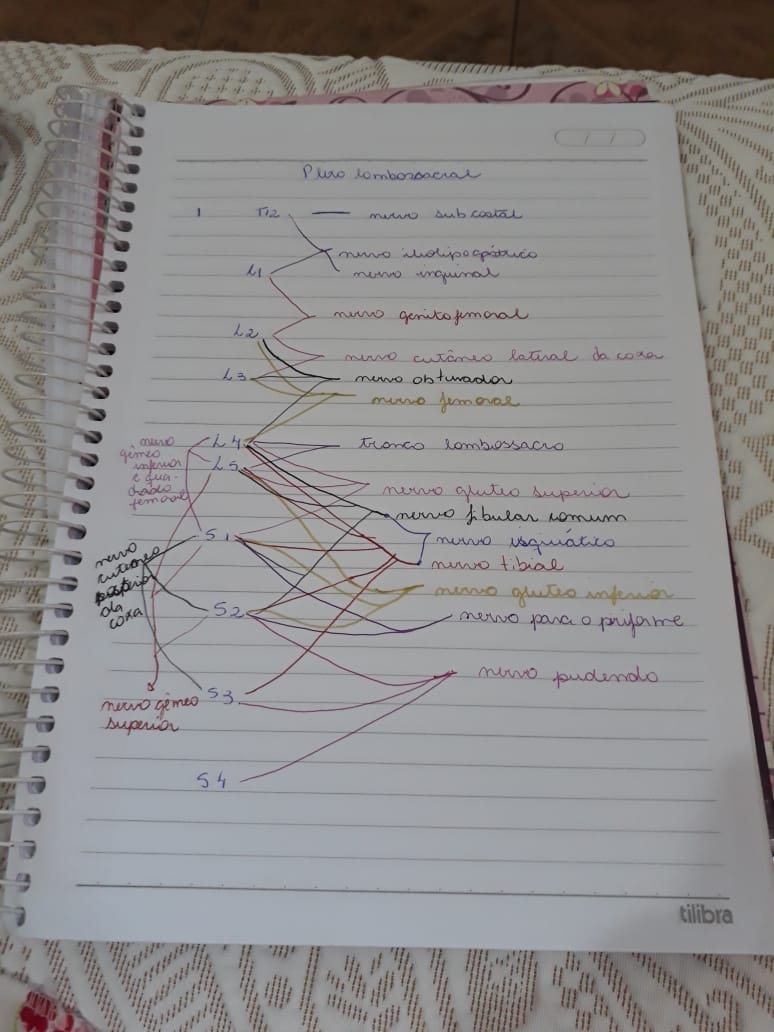 Plexo lombossacral
T12 — nervo subcostal
nervo iliohipogástrico
L1 nervo inguinal
nervo genitofemoral
L2
nervo cutâneo lateral da coxa
L3 nervo obturador
nervo femoral
nervo
gêmeo
inferior
e qua-
drado
femoral
L4 tronco lombossacro
L5
nervo gluteo superior
nervo fibular comum
S1 nervo isquiático
nervo tibial
nervo
cutâneo
posterior
da
coxa
nervo gluteo inferior
S2 nervo para o piriforme
nervo pudendo
S3
nervo gêmeo
superior
S4
tilibra